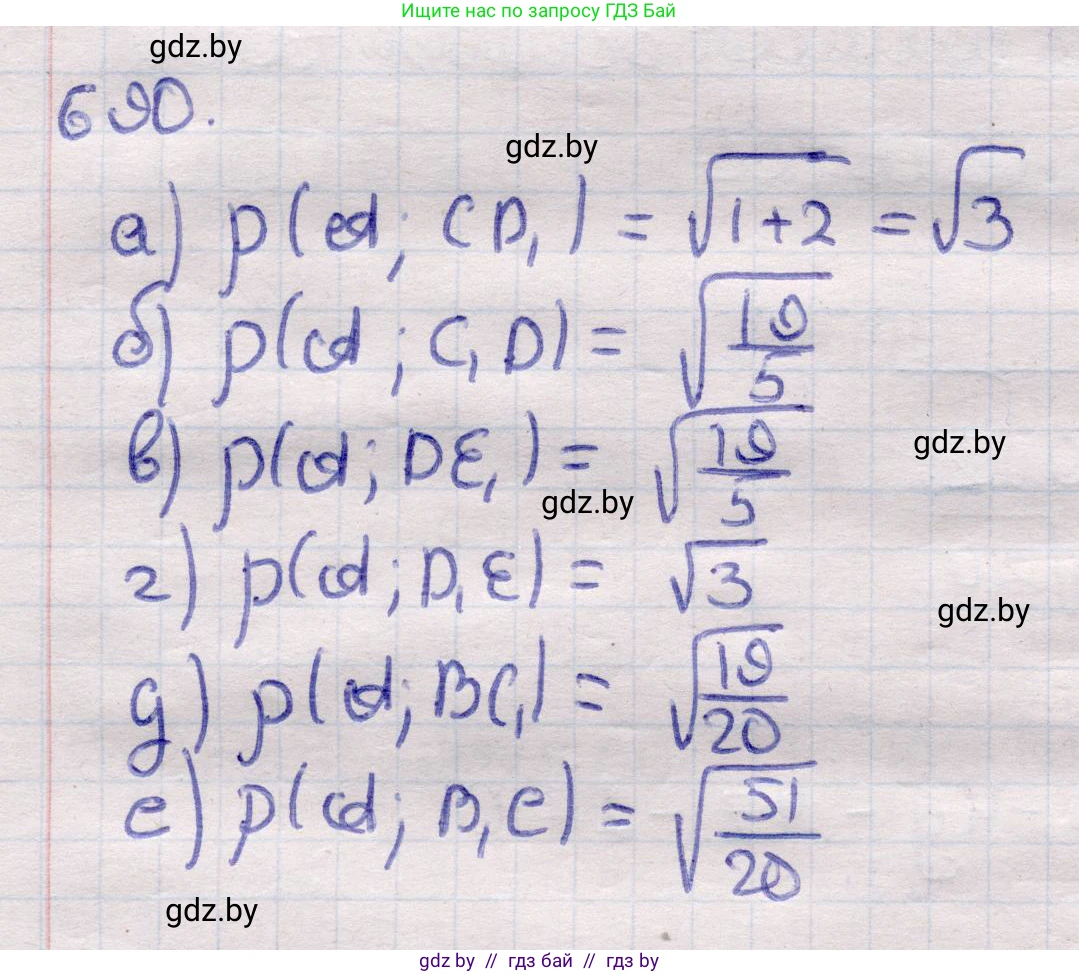 Ищите нас по запросу ГДЗ Бай
gdz.by
690.
gdz.by
а) p(A; CD₁) = √(1+2) = √3
б) p(A; C₁D) = √(19/5)
gdz.by
в) p(A; DE₁) = √(19/5)
gdz.by
г) p(A; D₁E) = √3
gdz.by
д) p(A; BC₁) = √(19/20)
е) p(A; B₁C) = √(51/20)
gdz.by
gdz.by // гдз бай // гдз by